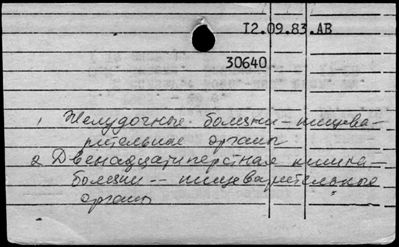 12.09.83.AB
30640
1 Желудочные болезни - пищева-
рительные органы
2. Двенадцатиперстная кишка -
болезни -- пищеварительные
органы